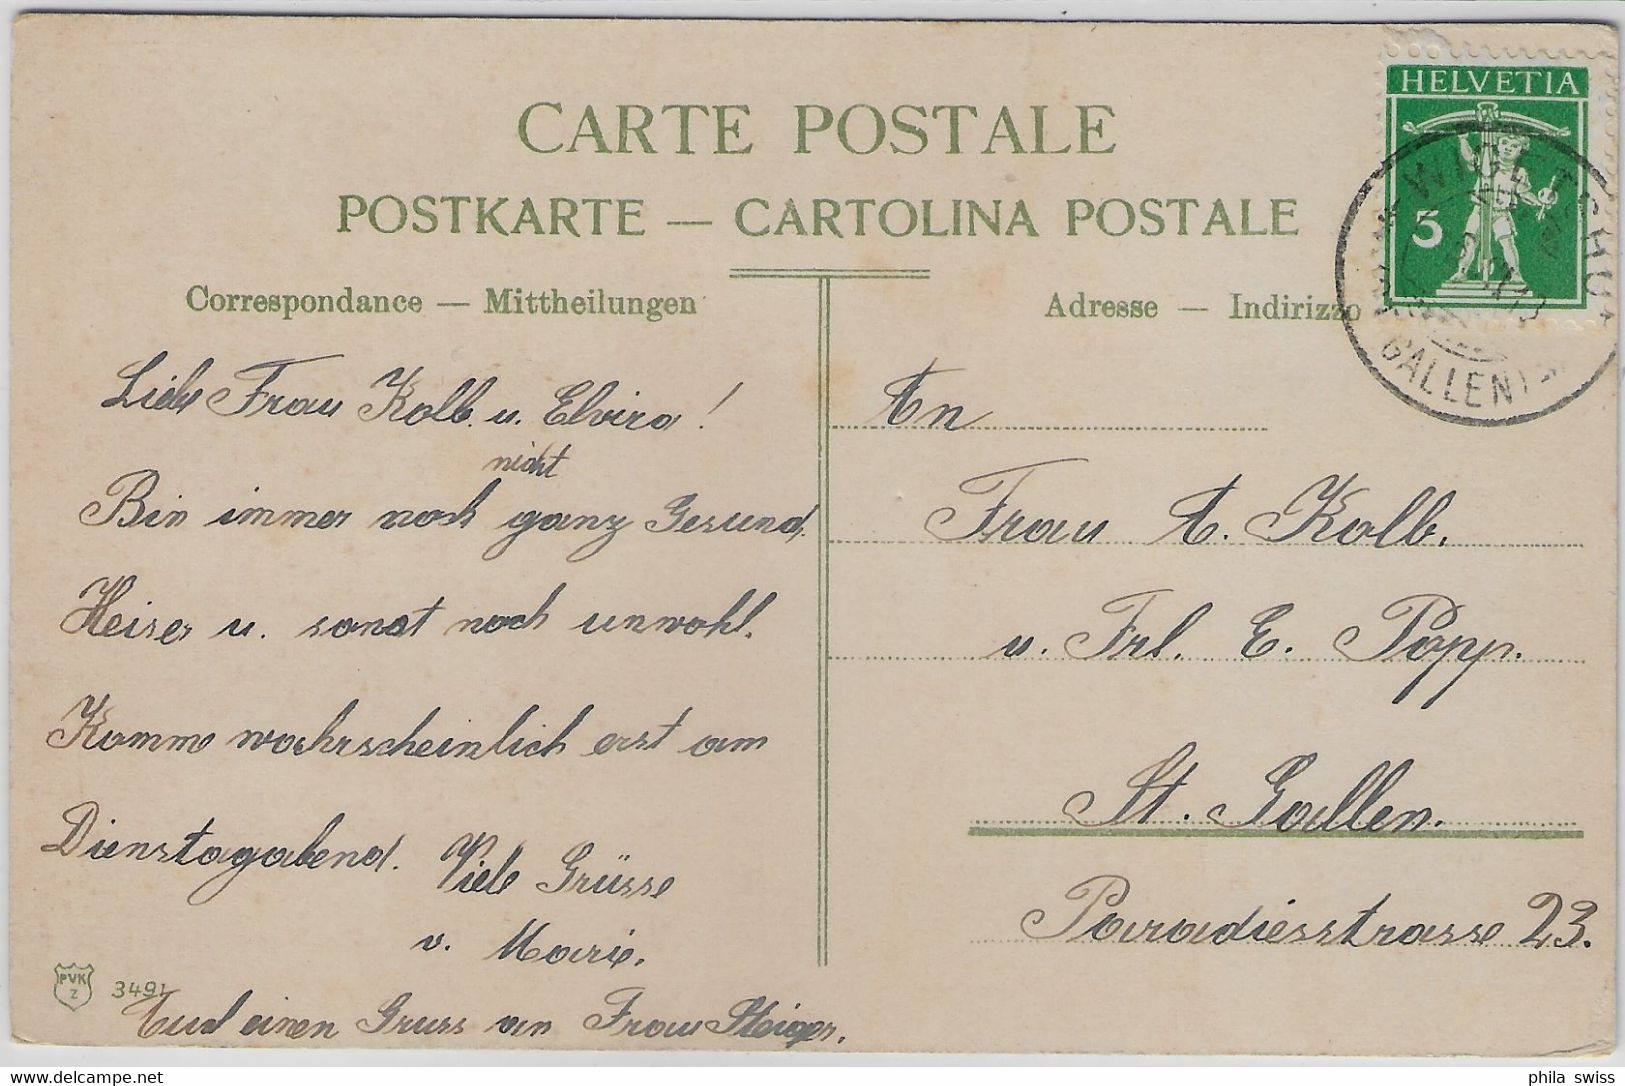 CARTE POSTALE
POSTKARTE — CARTOLINA POSTALE
Correspondance — Mittheilungen
Adresse — Indirizzo
HELVETIA
5
GALLEN)
Liebe Frau Kolb. u. Elvira!
nicht
Bin immer noch ganz Gesund.
Heiser u. sonst noch unwohl.
Komme wahrscheinlich erst am
Dienstagabend. Viele Grüsse
v. Marie.
Auch einen Gruss an Frau Steiger.
An
Frau A. Kolb.
u. Frl. E. Popp.
St. Gallen.
Paradiesstrasse 23.
PVK
Z
3491
delcampe.net
phila swiss